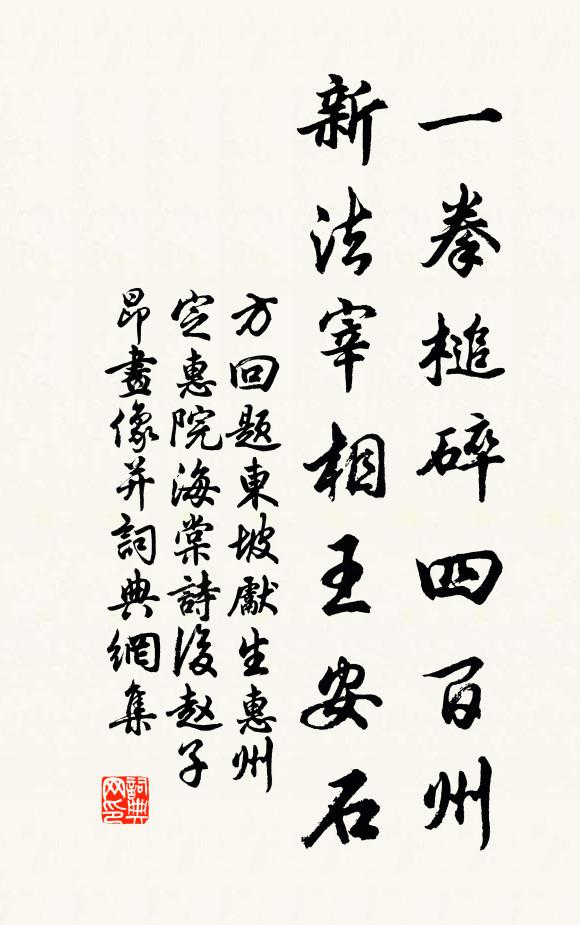 一拳槌碎四百州
新法宰相王安石
方回題東坡獻生惠州
定惠院海棠詩後赵子
昂畫像并詞典網集
詞典网印